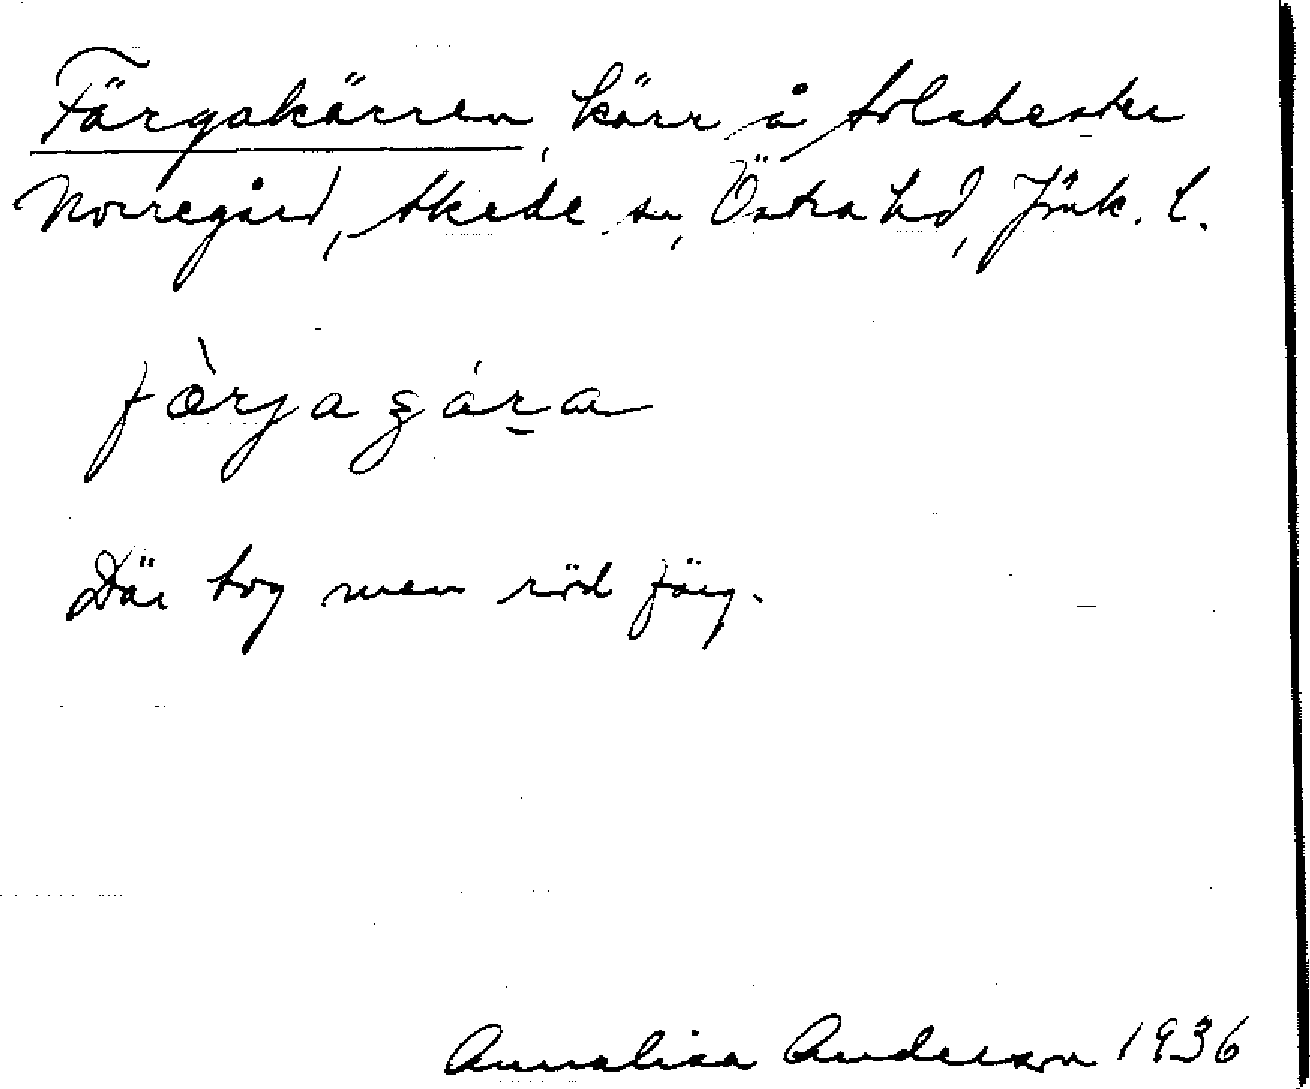 Färgakärren, kärr å Solaberke
Norregård, Skede sn, Östra hd, Jönk. l.
fæ̀rjaʒára
Där tog man röd färg.
Annalisa Anderson 1936